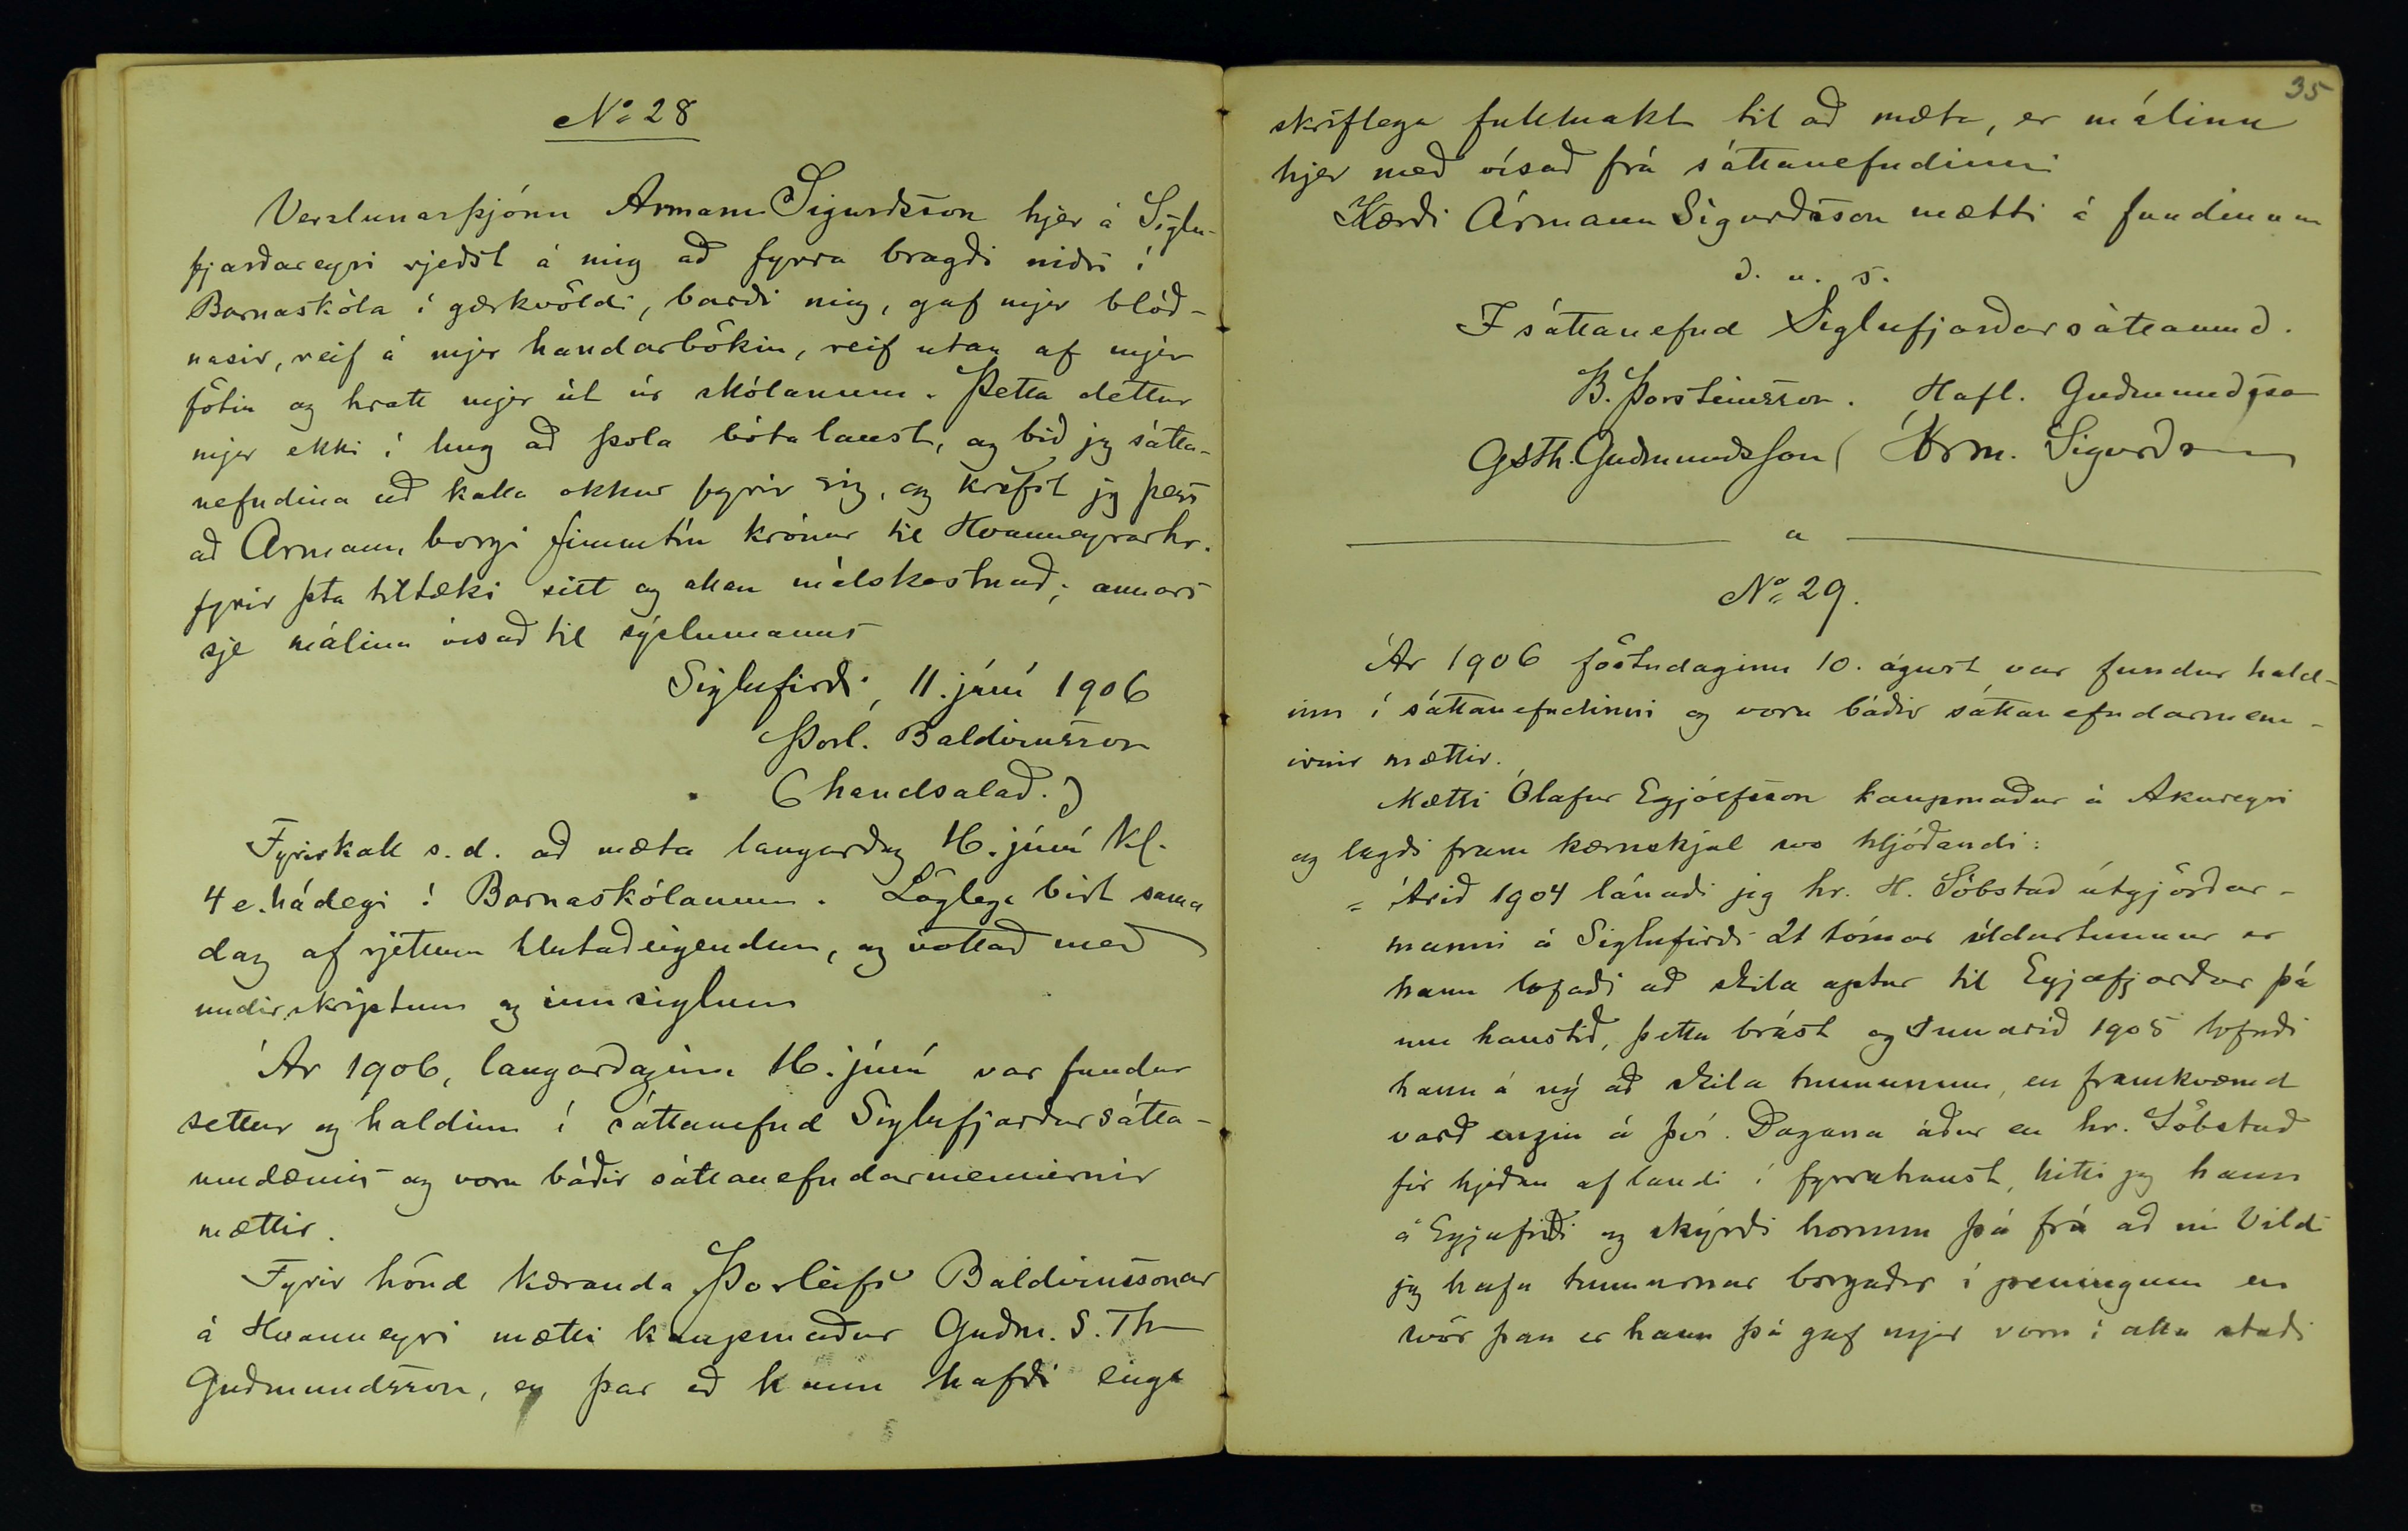 No 28
Verslunarþjónn Armann Sigurdsson hjer á Siglu-
fjarðareyri rjeðst á mig að fyrra bragði niðri í
Barnaskóla í gærkvöldi, barði mig, gaf mjer blóð-
nasir, reif á mjer handarbökin, reif utan af mjer
fötin og hratt mjer út úr skólanum. Þetta dettur
mjer ekki í hug að þola bótalaust, og bið jeg sátta-
nefndina að kalla okkur fyrir sig, og krefst jeg þess
að Armann borgi fimmtíu krónur til Hvanneyrarhr.
fyrir þta tiltæki sitt og allan málskostnað; annars
sje málinu vísað til sýslumanns
Siglufirði, 11. júní 1906
Þorl. Baldvinsson
(handsalað.)
Fyrirkall s.d. að mæta laugardag 16. júní kl.
4 e. hádegi í Barnaskólanum. Löglega birt sama
dag af rjettum hlutaðeigendum, og vottað með
undirskriptum og innsiglum
Ár 1906, laugardaginn 16. júní var fundur
settur og haldinn í sáttanefnd Siglufjarðarsátta-
umdæmis og voru báðir sáttanefndarmennirnir
mættir.
Fyrir hönd kæranda Þorleifs Baldvinssonar
á Hvanneyri mætti kaupmaður Guðm. S. Th
Guðmundsson, en þar eð hann hafði enga
35
skriflega fullmakt til að mæta, er málinu
hjer með vísað frá sáttanefndinni
Kærði Ármann Sigurðsson mætti á fundinum
d. u. s.
Í sáttanefnd Siglufjarðarsáttaumd.
B. Þorsteinsson. Hafl. Guðmundsson
GSTh. Guðmundsson Árm. Sigurðsson
No 29.
Ár 1906 föstudaginn 10. ágúst var fundur hald-
inn í sáttanefndinni og voru báðir sáttanefndarmenn-
irnir mættir.
Mætti Ólafur Eyjólfsson kaupmaður á Akureyri
og lagði fram kæruskjal svo hljóðandi:
" Árið 1904 lánaði jeg hr. H. Söbstad útgjörðar-
manni á Siglufirði 21 tómar síldartunnur er
hann lofaði að skila aptur til Eyjafjarðar þá
um haustið, þetta brást og sumarið 1905 lofaði
hann á ný að skila tunnunum, en framkvæmd
varð engin á því. Dagana áður en hr. Söbstad
fór hjeðan af landi í fyrrahaust, hitti jeg hann
á Eyjafirði og skýrði honum þá frá að nú vildi
jeg hafa tunnurnar borgaðar í peningum en
svör þau er hann þá gaf mjer voru í alla staði